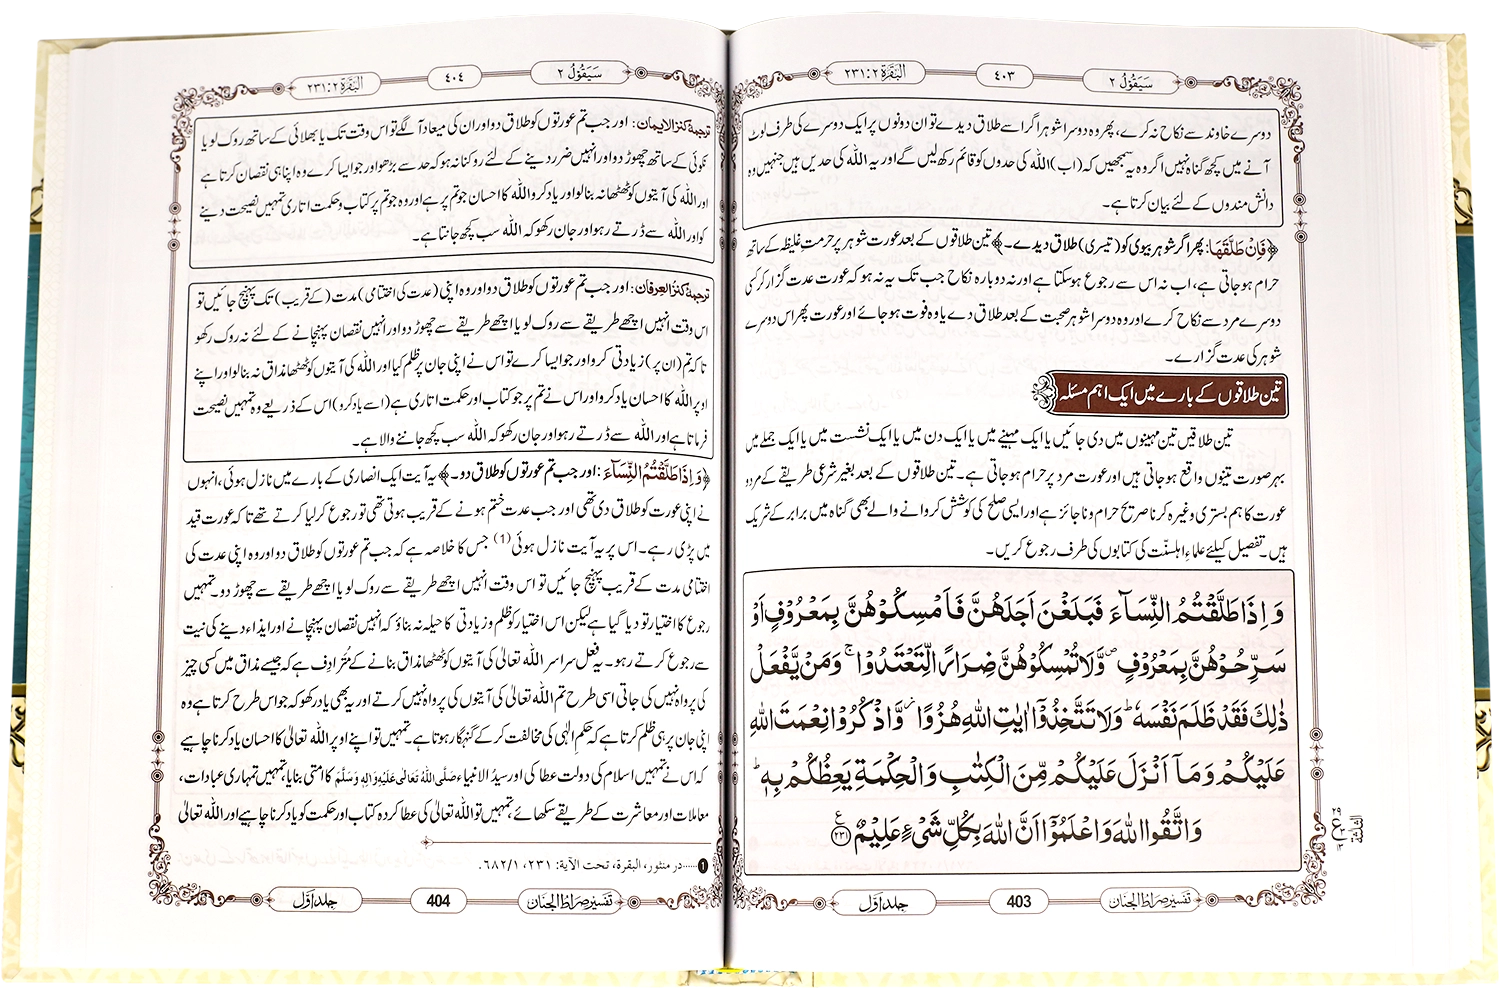 سَيَقُوْلُ ٢
٤٠٣
اَلْبَقَرَة ٢ : ٢٣١
دوسرے خاوند سے نکاح نہ کرے، پھر وہ دوسرا شوہر اگر اسے طلاق دیدے تو ان دونوں پر ایک دوسرے کی طرف لوٹ
آنے میں کچھ گناہ نہیں اگر وہ یہ سمجھیں کہ (اب) اللہ کی حدوں کو قائم رکھ لیں گے اور یہ اللہ کی حدیں ہیں جنہیں وہ
دانش مندوں کے لئے بیان کرتا ہے۔
﴿فَاِنْ طَلَّقَهَا: پھر اگر شوہر بیوی کو (تیسری) طلاق دیدے۔﴾ تین طلاقوں کے بعد عورت شوہر پر حرمتِ غلیظہ کے ساتھ
حرام ہوجاتی ہے، اب نہ اس سے رجوع ہوسکتا ہے اور نہ دوبارہ نکاح جب تک یہ نہ ہو کہ عورت عدت گزار کر کسی
دوسرے مرد سے نکاح کرے اور وہ دوسرا شوہر صحبت کے بعد طلاق دے یا وہ فوت ہوجائے اور عورت پھر اس دوسرے
شوہر کی عدت گزارے۔
تین طلاقوں کے بارے میں ایک اہم مسئلہ
تین طلاقیں تین مہینوں میں دی جائیں یا ایک مہینے میں یا ایک دن میں یا ایک نشست میں یا ایک جملے میں
بہر صورت تینوں واقع ہوجاتی ہیں اور عورت مرد پر حرام ہوجاتی ہے۔ تین طلاقوں کے بعد بغیر شرعی طریقے کے مرد و
عورت کا ہم بستری وغیرہ کرنا صریح حرام و ناجائز ہے اور ایسی صلح کی کوشش کروانے والے بھی گناہ میں برابر کے شریک
ہیں۔ تفصیل کیلئے علماءِ اہلسنّت کی کتابوں کی طرف رجوع کریں۔
وَ اِذَا طَلَّقْتُمُ النِّسَآءَ فَبَلَغْنَ اَجَلَهُنَّ فَاَمْسِكُوْهُنَّ بِمَعْرُوْفٍ اَوْ
سَرِّحُوْهُنَّ بِمَعْرُوْفٍ ۪ وَّ لَا تُمْسِكُوْهُنَّ ضِرَارًا لِّتَعْتَدُوْا ۚ وَ مَنْ یَّفْعَلْ
ذٰلِكَ فَقَدْ ظَلَمَ نَفْسَهٗ ؕ وَ لَا تَتَّخِذُوْۤا اٰیٰتِ اللّٰهِ هُزُوًا ۫ وَّ اذْكُرُوْا نِعْمَتَ اللّٰهِ
عَلَیْكُمْ وَ مَاۤ اَنْزَلَ عَلَیْكُمْ مِّنَ الْكِتٰبِ وَ الْحِكْمَةِ یَعِظُكُمْ بِهٖ ؕ
وَ اتَّقُوا اللّٰهَ وَ اعْلَمُوْۤا اَنَّ اللّٰهَ بِكُلِّ شَیْءٍ عَلِیْمٌ ﴿۲۳۱﴾
تفسیر صراط الجنان
403
جلد اوّل
سَيَقُوْلُ ٢
٤٠٤
اَلْبَقَرَة ٢ : ٢٣١
ترجمۂ کنزالایمان: اور جب تم عورتوں کو طلاق دو اور ان کی میعاد آلگے تو اس وقت تک یا بھلائی کے ساتھ روک لو یا
نکوئی کے ساتھ چھوڑ دو اور انہیں ضرر دینے کے لئے روکنا نہ ہو کہ حد سے بڑھو اور جو ایسا کرے وہ اپنا ہی نقصان کرتا ہے
اور اللہ کی آیتوں کو ٹھٹھا نہ بنالو اور یاد کرو اللہ کا احسان جو تم پر ہے اور وہ جو تم پر کتاب و حکمت اتاری تمہیں نصیحت دینے
کو اور اللہ سے ڈرتے رہو اور جان رکھو کہ اللہ سب کچھ جانتا ہے۔
ترجمۂ کنزالعرفان: اور جب تم عورتوں کو طلاق دو اور وہ اپنی (عدت کی اختتامی) مدت (کے قریب) تک پہنچ جائیں تو
اس وقت انہیں اچھے طریقے سے روک لو یا اچھے طریقے سے چھوڑ دو اور انہیں نقصان پہنچانے کے لئے نہ روک رکھو
تاکہ تم (ان پر) زیادتی کرو اور جو ایسا کرے تو اس نے اپنی جان پر ظلم کیا اور اللہ کی آیتوں کو ٹھٹھا مذاق نہ بنالو اور اپنے
اوپر اللہ کا احسان یاد کرو اور اس نے تم پر جو کتاب اور حکمت اتاری ہے (اسے یاد کرو) اس کے ذریعے وہ تمہیں نصیحت
فرماتا ہے اور اللہ سے ڈرتے رہو اور جان رکھو کہ اللہ سب کچھ جاننے والا ہے۔
﴿وَ اِذَا طَلَّقْتُمُ النِّسَآءَ: اور جب تم عورتوں کو طلاق دو۔﴾ یہ آیت ایک انصاری کے بارے میں نازل ہوئی، انہوں
نے اپنی عورت کو طلاق دی تھی اور جب عدت ختم ہونے کے قریب ہوتی تھی تو رجوع کرلیا کرتے تھے تاکہ عورت قید
میں پڑی رہے۔ اس پر یہ آیت نازل ہوئی(1) جس کا خلاصہ ہے کہ جب تم عورتوں کو طلاق دو اور وہ اپنی عدت کی
اختتامی مدت کے قریب پہنچ جائیں تو اس وقت انہیں اچھے طریقے سے روک لو یا اچھے طریقے سے چھوڑ دو۔ تمہیں
رجوع کا اختیار تو دیا گیا ہے لیکن اس اختیار کو ظلم و زیادتی کا حیلہ نہ بناؤ کہ انہیں نقصان پہنچانے اور ایذاء دینے کی نیت
سے رجوع کرتے رہو۔ یہ فعل سراسر اللہ تعالیٰ کی آیتوں کو ٹھٹھا مذاق بنانے کے مُتَرادِف ہے کہ جیسے مذاق میں کسی چیز
کی پرواہ نہیں کی جاتی اسی طرح تم اللہ تعالیٰ کی آیتوں کی پرواہ نہیں کرتے اور یہ بھی یاد رکھو کہ جو اس طرح کرتا ہے وہ
اپنی جان پر ہی ظلم کرتا ہے کہ حکمِ الٰہی کی مخالفت کرکے گنہگار ہوتا ہے۔ تمہیں تو اپنے اوپر اللہ تعالیٰ کا احسان یاد کرنا چاہیے
کہ اس نے تمہیں اسلام کی دولت عطا کی اور سیدُ الانبیاء صَلَّی اللہُ تَعَالٰی عَلَیْہِ وَاٰلِہٖ وَسَلَّمَ کا امتی بنایا، تمہیں تمہاری عبادات،
معاملات اور معاشرت کے طریقے سکھائے، تمہیں تو اللہ تعالیٰ کی عطا کردہ کتاب اور حکمت کو یاد کرنا چاہیے اور اللہ تعالیٰ
❶......در منثور، البقرة، تحت الآية: ٢٣١، ٦٨٢/١.
تفسیر صراط الجنان
404
جلد اوّل